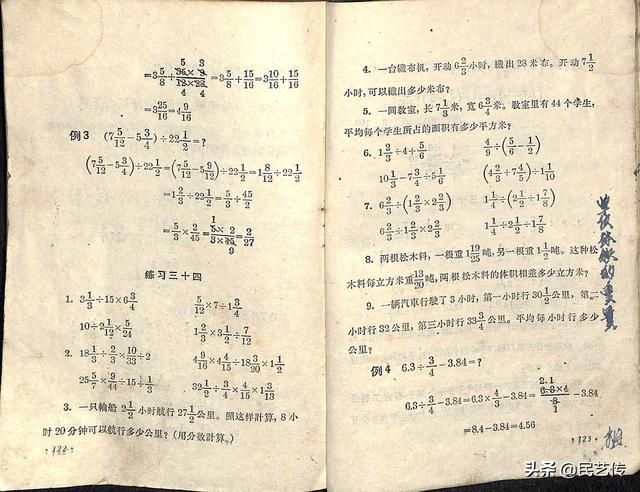 =3 5/8 + (35×9)/(12×28) =3 5/8 + 15/16 =3 10/16 + 15/16
=3 25/16 =4 9/16
例3 (7 5/12 −5 3/4) ÷22 1/2 =?
(7 5/12 −5 3/4) ÷22 1/2 = (7 5/12 −5 9/12) ÷22 1/2 =1 8/12 ÷22 1/2
=1 2/3 ÷22 1/2 = 5/3 ÷ 45/2
= 5/3 × 2/45 = (5×2)/(3×45) = 2/27
练习三十四
1. 3 1/3 ÷15×6 3/4 5/12 ×7÷1 3/4
10÷2 1/12 × 5/24 1 2/3 ×3 1/2 ÷ 7/12
2. 18 1/3 ÷ 2/3 × 10/33 ÷2 4 9/16 × 4/15 ÷18 3/20 ×1 1/2
25 5/7 × 9/44 ÷15÷ 1/3 32 1/2 ÷ 3/4 × 4/15 ×1 3/13
3. 一只輪船 2 1/2 小时航行27 1/2 公里。照这样計算,8小
时20分钟可以航行多少公里?(用分数計算。)
· 122 ·
4. 一台織布机,开动6 2/3 小时,織出28米布。开动7 1/2
小时,可以織出多少米布?
5. 一間敎室,长7 1/3 米,宽6 3/4 米。敎室里有44个学生,
平均每个学生所占的面积有多少平方米?
6. 1 2/3 ÷4+ 5/6 4/9 ÷ (5/6 − 1/2)
10 1/3 −7 3/4 ÷5 1/6 (4 2/3 +7 4/5) ÷1 1/10
7. 6 2/3 ÷ (1 2/3 ×2 2/3) 1 1/4 ÷ (2 1/2 ÷1 7/8)
6 2/3 ÷1 2/3 ×2 2/3 1 1/4 ÷2 1/2 ÷1 7/8
8. 两根松木料,一根重1 19/25 吨,另一根重1 1/2 吨。这种松
木料每立方米重 13/20 吨,两根松木料的体积相差多少立方米?
9. 一辆汽車行駛了3小时,第一小时行30 1/2 公里,第二
小时行32公里,第三小时行33 3/4 公里。平均每小时行多少
公里?
例4 6.3÷ 3/4 −3.84=?
6.3÷ 3/4 −3.84=6.3× 4/3 −3.84= (6.3×4)/3 −3.84
=8.4−3.84=4.56
· 123 ·
头条 @民艺传